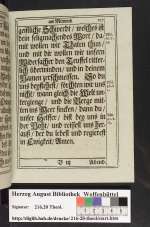 am Mitwoch
geistliche Schwerdt / welches ist
dein seligmachendes Wort / da-
mit wollen wir Thaten thun /
und mit dir wollen wir unsern
Widersacher den Teuffel ritter-
lich überwinden / und in deinem
Namen zerschmeissen. So du
uns beystehest / förchten wir uns
nicht / wann gleich die Welt un-
tergienge / und die Berge mit-
ten ins Meer sincken / dann du
unser Helffer / bist bey uns in
der Noht / und reissest uns her-
auß / der du lebest und regierest
in Ewigkeit / Amen.
Abend-
Herzog August Bibliothek Wolfenbüttel
Signatur: 216.20 Theol.
http://diglib.hab.de/drucke/216-20-theol/start.htm